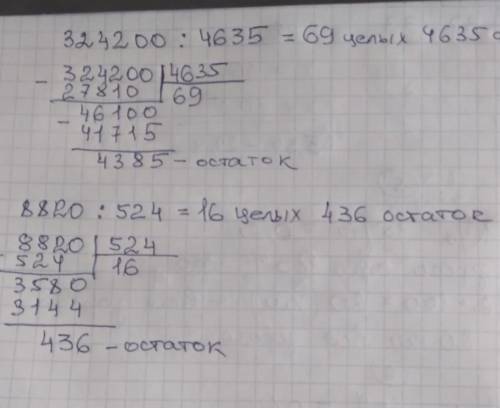 324200 : 4635 = 69 целых 4635
- 324200 | 4635
27810 69
- 46100
41715
4385 - остаток
8820 : 524 = 16 целых 436 остаток
- 8820 | 524
524 16
3580
3144
436 - остаток